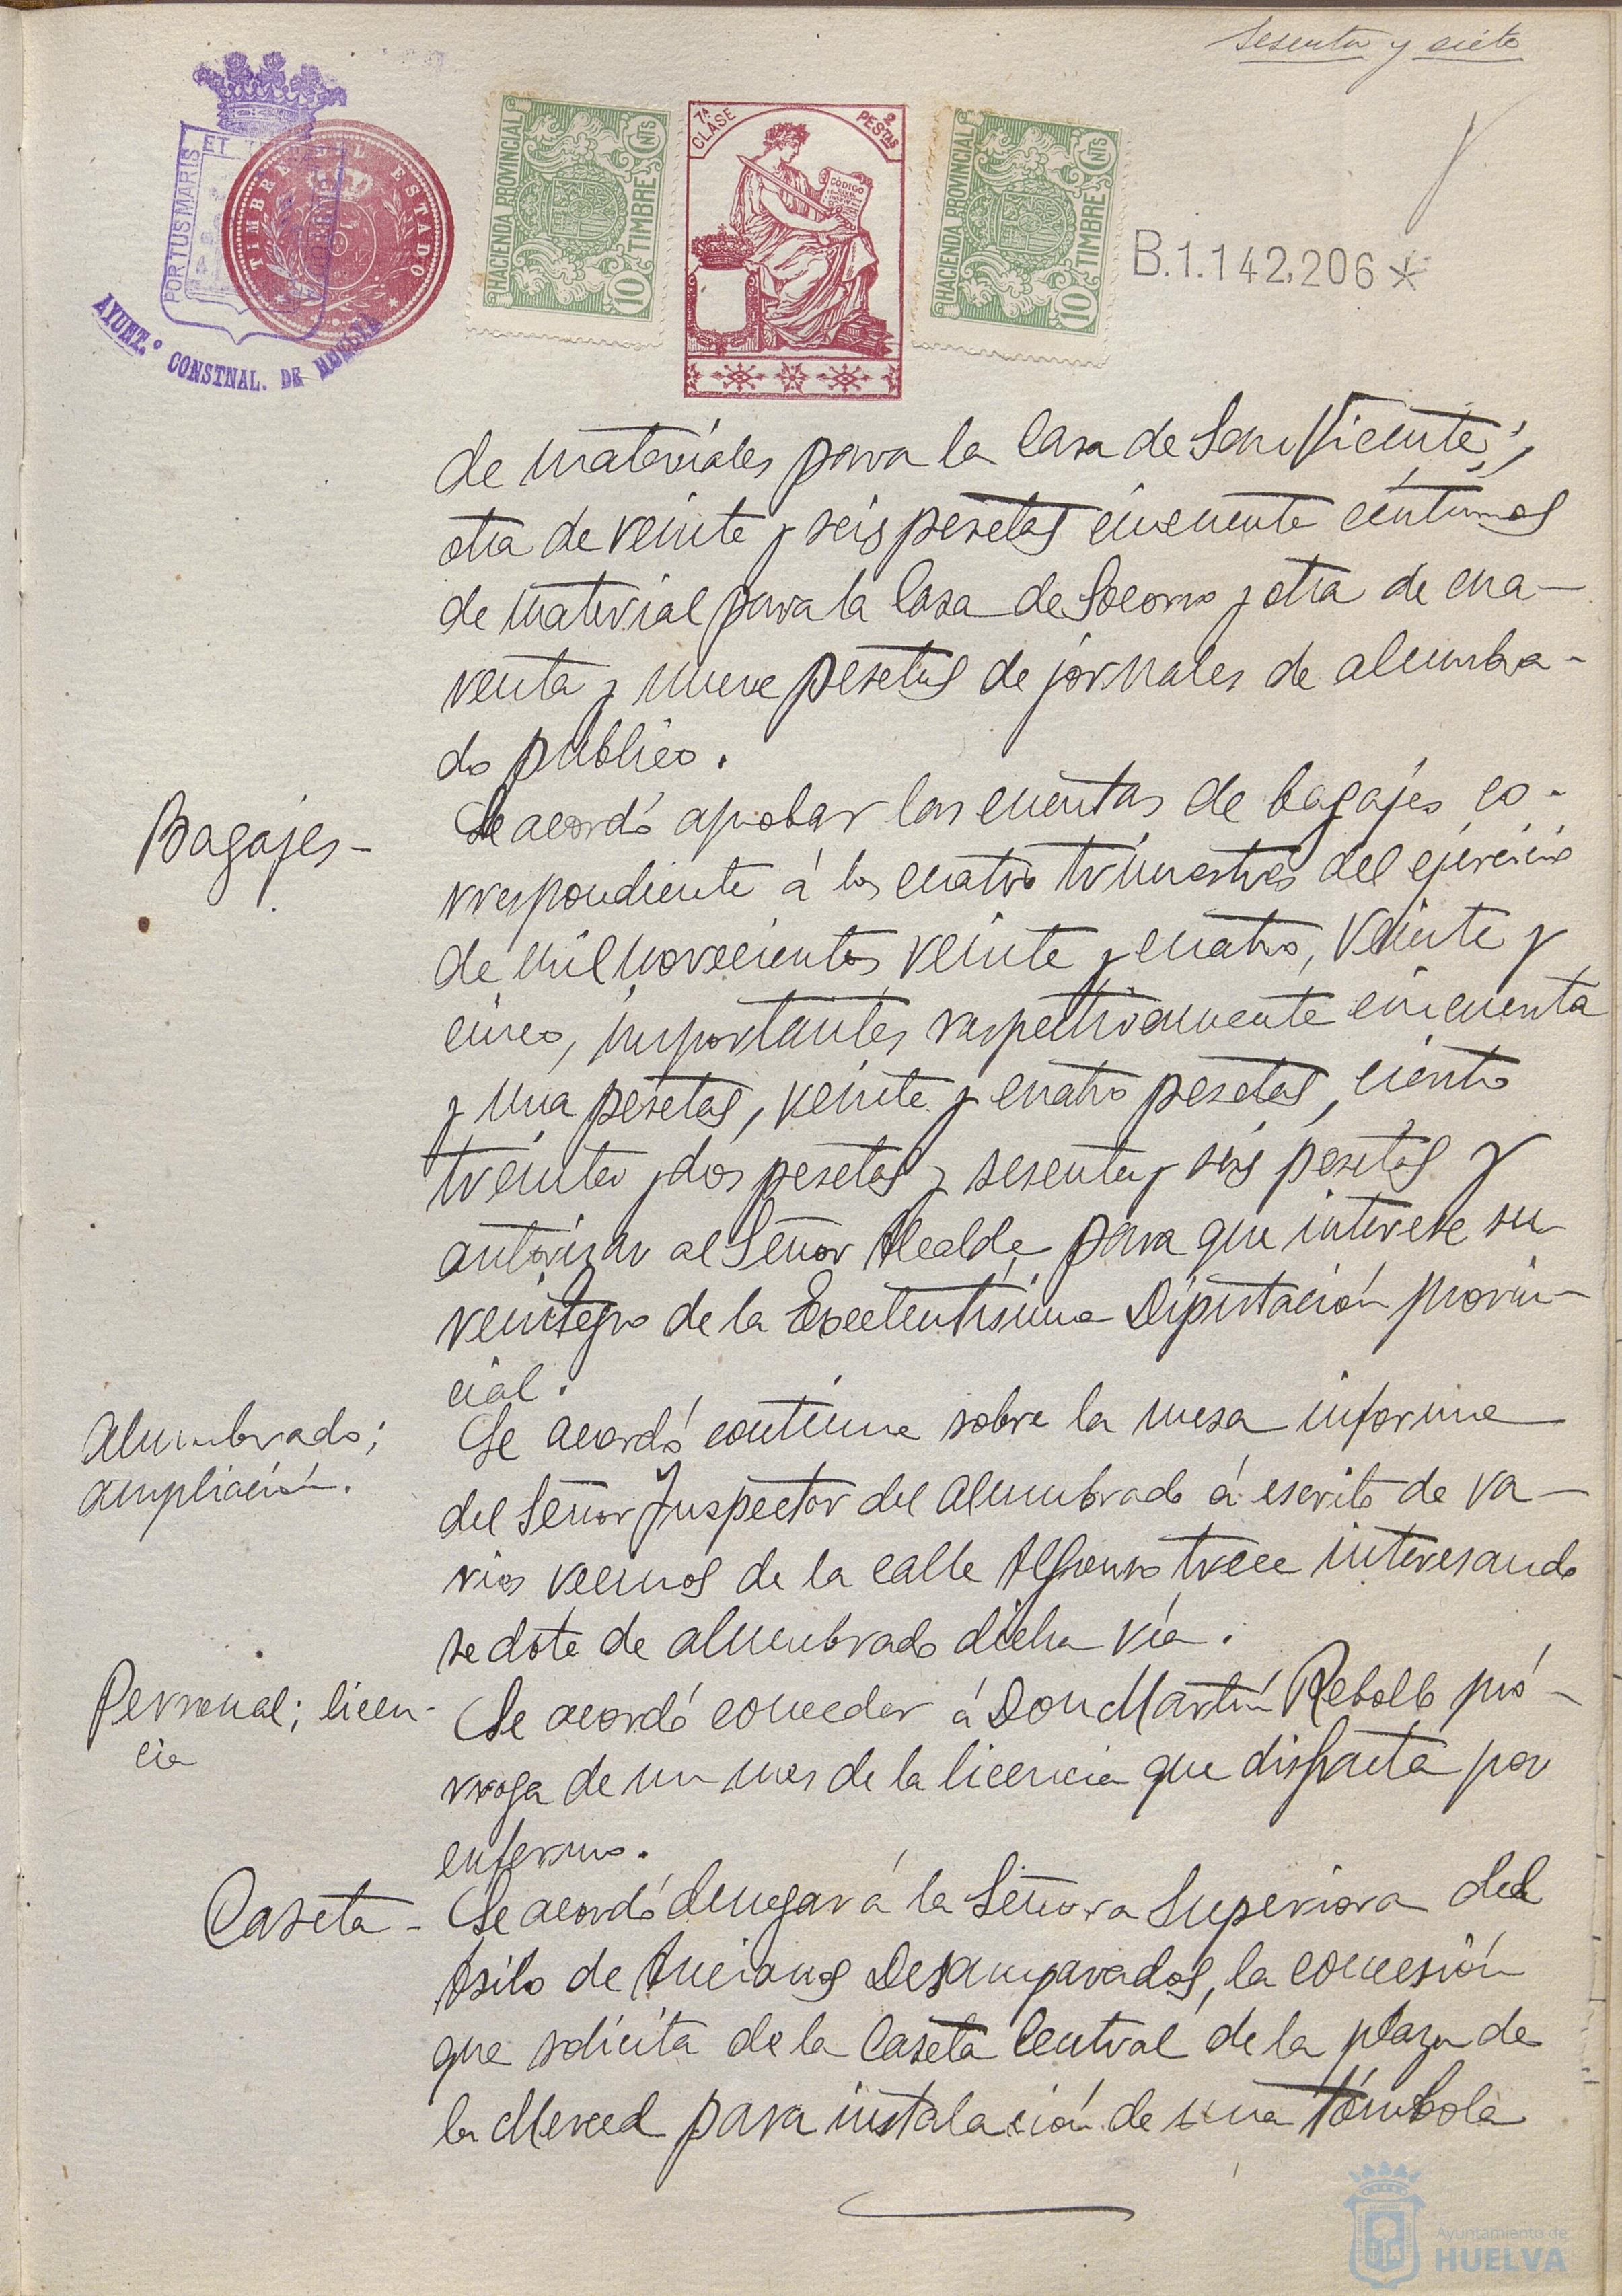 Sesenta y siete
PORTUS MARIS ET
TIMBRE DEL ESTADO
AYUNT.º CONSTNAL. DE HUELVA
HACIENDA PROVINCIAL
10 CNTS
TIMBRE
7ª CLASE
2 PESTAS
CÓDIGO
HACIENDA PROVINCIAL
10 CNTS
TIMBRE
B.1.142,206*
de materiales para la Casa de San Vicente;
otra de veinte y seis pesetas cincuenta céntimos
de material para la Casa de Socorro y otra de cua-
renta y nueve pesetas de jornales de alumbra-
do público.
Bagajes-
Se acordó aprobar las cuentas de bagajes co-
rrespondiente á los cuatro trimestres del ejercicio
de mil novecientos veinte y cuatro, veinte y
cinco, importantes respectivamente cincuenta
y una pesetas, veinte y cuatro pesetas, ciento
treinta y dos pesetas y sesenta y seis pesetas y
autorizar al Señor Alcalde para que interese su
reintegro de la Excelentísima Diputación provin-
cial.
Alumbrado;
ampliación.
Se acordó continue sobre la mesa informe
del Señor Inspector del alumbrado á escrito de va-
rios vecinos de la calle Alfonso trece interesando
se dote de alumbrado dicha vía.
Personal; licen-
cia
Se acordó conceder á Don Martín Rebollo pró-
rroga de un mes de la licencia que disfruta por
enfermo.
Caseta-
Se acordó denegar á la Señora Superiora del
Asilo de Ancianos Desamparados, la concesión
que solicita de la Caseta Central de la plaza de
la Merced para instalación de una tómbola
Ayuntamiento de
HUELVA